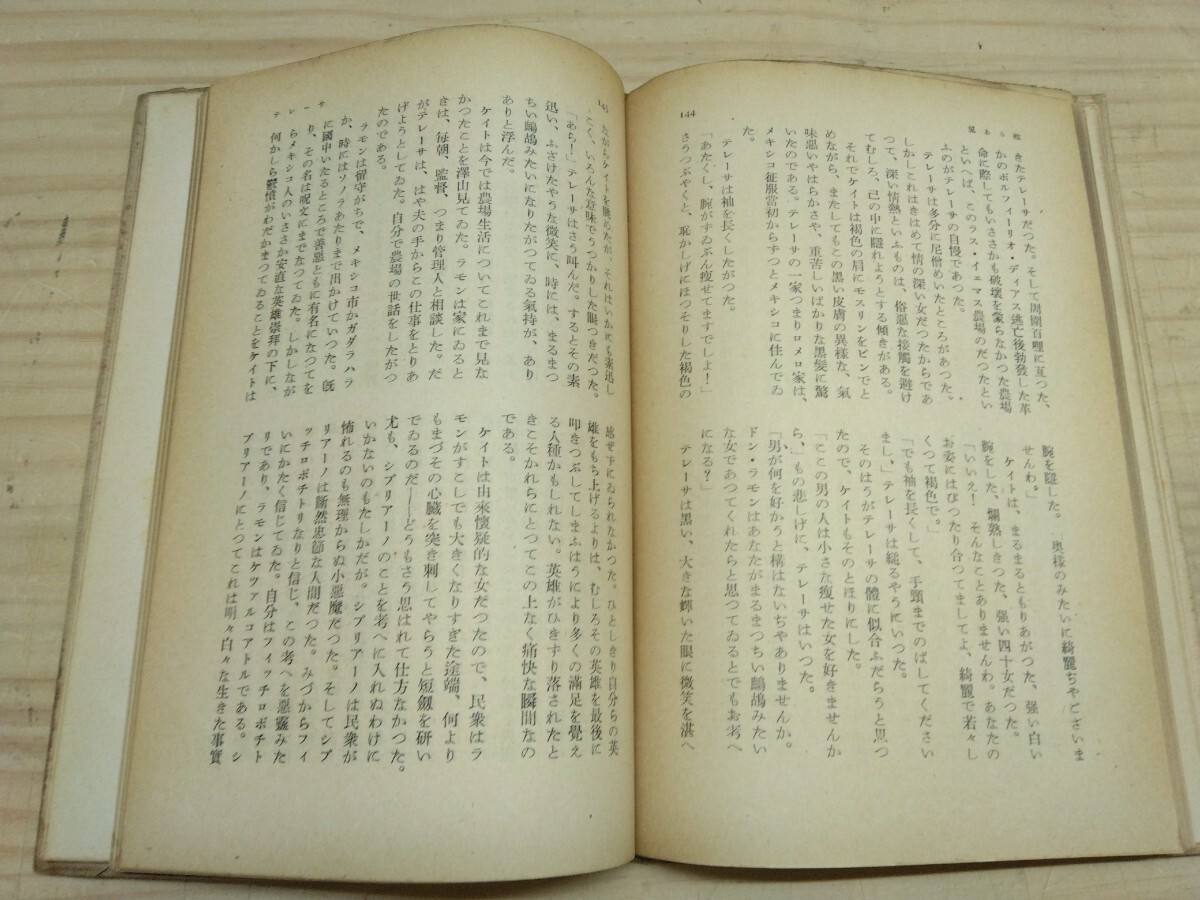 144
翼ある蛇
きたテレーサだつた。そして周圍百哩に亙つた、
かのポルフィーリオ・ディアス逃亡後勃發した革
命に際してもいささかも破壞を蒙らなかつた農場
といへば、このラス・イェマス農場のだつたとい
ふのがテレーサの自慢であつた。
テレーサは多分に尼僧めいたところがあつた。
しかしこれはきはめて情の深い女だつたからであ
つて、深い情熱といふものは、俗惡な接觸を避け
てむしろ、己の中に隱れようとする傾きがある。
それでケイトは褐色の肩にモスリンをピンでと
めながら、またしてもこの黒い皮膚の異樣な、氣
味惡いやはらかさ、重苦しいばかりな黒髮に驚
いたのである。テレーサの一家つまりロメロ家は、
メキシコ征服當初からずつとメキシコに住んでゐ
た。
テレーサは袖を長くしたがつた。
「あたくし、腕がずゐぶん瘦せてますでしよ!」
さうつぶやくと、恥かしげにほつそりした褐色の
腕を隱した。「奧樣のみたいに綺麗ぢやございま
せんわ。」
ケイトは、まるまるともりあがつた、強い白い
腕をした、爛熟しきつた、強い四十女だつた。
「いいえ! そんなことありませんわ。あなたの
お姿にはぴつたり合つてましてよ、綺麗で若々し
くつて褐色で。」
「でも袖を長くして、手頸までのばしてください
まし、」テレーサは縋るやうにいつた。
そのはうがテレーサの體に似合ふだらうと思つ
たので、ケイトもそのとほりにした。
「ここの男の人は小さな瘦せた女を好きませんか
ら、」もの悲しげに、テレーサはいつた。
「男が何を好かうと構はないぢやありませんか。
ドン・ラモンはあなたがまるまつちい鷓鴣みたい
な女であつてくれたらと思つてゐるとでもお考へ
になる?」
テレーサは黒い、大きな輝いた眼に微笑を湛へ
145
テレーサ
ながらケイトを眺めたが、それはいかにも素迅し
こく、いろんな意味でうつかりした眼つきだつた。
「あら!」テレーサはさう叫んだ。するとその素
迅い、ふざけたやうな微笑に、時には、まるまつ
ちい鷓鴣みたいになりたがつてゐる氣持が、あり
ありと浮んだ。
ケイトは今では農場生活についてこれまで見な
かつたことを澤山見てゐた。ラモンは家にゐると
きは、毎朝、監督、つまり管理人と相談した。だ
がテレーサは、はや夫の手からこの仕事をとりあ
げようとしてゐた。自分で農場の世話をしたがつ
たのである。
ラモンは留守がちで、メキシコ市かガダラハラ
か、時にはソノラあたりまで出かけていつた。旣
に國中いたるところで善惡ともに有名になつてを
り、その名は呪文にまでなつてゐた。しかしなが
らメキシコ人のいささか安直な英雄崇拜の下に、
何かしら鬱憤がわだかまつてゐることをケイトは
感ぜずにゐられなかつた。ひとしきり自分らの英
雄をもち上げるよりは、むしろその英雄を最後に
叩きつぶしてしまふはうにより多くの滿足を覺え
る人種かもしれない。英雄がひきずり落されたと
きこそかれらにとつてこの上なく痛快な瞬間なの
である。
ケイトは由來懷疑的な女だつたので、民衆はラ
モンがすこしでも大きくなりすぎた途端、何より
もまづその心臟を突き刺してやらうと短劍を研い
でゐるのだ――どうもさう思はれて仕方なかつた。
尤も、シプリアーノのことを考へに入れぬわけに
いかないのもたしかだが。シプリアーノは民衆が
怖れるのも無理からぬ小惡魔だつた。そしてシプ
リアーノは斷然忠節な人間だつた。みづからフィ
ッチロポチトリなりと信じ、この考へを惡靈みた
いにかたく信じてゐた。自分はフィッチロポチト
リであり、ラモンはケツアルコアトルである。シ
プリアーノにとつてこれは明々白々な生きた事實